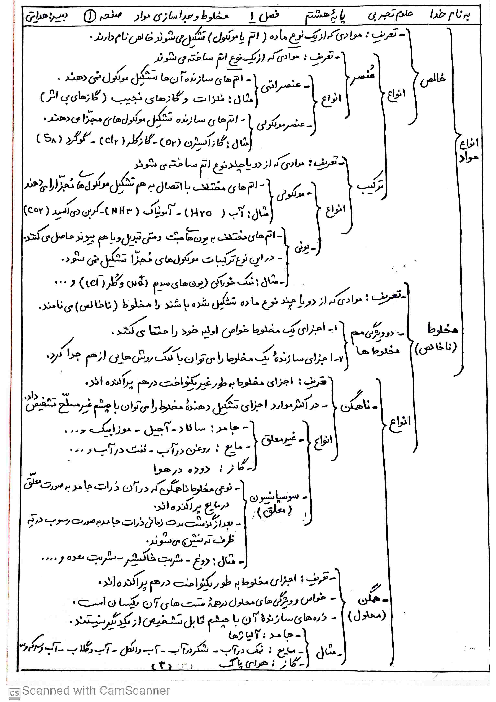 به نام خدا علوم تجربی پایه هشتم فصل 1 مخلوط و جداسازی مواد صفحه 1
انواع مواد
خالص
- تعریف: موادی که از یک نوع ماده (اتم یا مولکول) تشکیل می شوند خالص نام دارند.
انواع
عنصر
- تعریف: موادی که از یک نوع اتم ساخته می شوند
انواع
- عنصر اتمی
- اتم های سازنده آن ها تشکیل مولکول نمی دهند.
مثال: فلزات و گازهای نجیب (گازهای بی اثر)
- عنصر مولکولی
- اتم های سازنده تشکیل مولکول های مجزا می دهند.
مثال: گاز اکسیژن (O2) - گاز کلر (Cl2) - گوگرد (S8)
ترکیب
- تعریف: موادی که از دو یا چند نوع اتم ساخته می شوند
انواع
- مولکولی
- اتم های مختلف با اتصال به هم تشکیل مولکول ها مجزا را می دهند
مثال: آب (H2O) - آمونیاک (NH3) - کربن دی اکسید (CO2)
- یونی
- اتم های مختلف به یون ها مثبت و منفی تبدیل و با هم پیوند حاصل می کنند.
- در این نوع ترکیبات مولکول های مجزا تشکیل نمی شود.
- مثال: نمک خوراکی (یون های سدیم و کلر) و ...
مخلوط (ناخالص)
- تعریف: موادی که از دو یا چند نوع ماده تشکیل شده باشند را مخلوط (ناخالص) می نامند.
- دو ویژگی مهم مخلوط ها
1- اجزای یک مخلوط خواص اولیه خود را حفظ می کنند.
2- اجزای سازندهٔ یک مخلوط را می توان با کمک روش هایی از هم جدا کرد.
انواع
- ناهمگن
- تعریف: اجزای مخلوط به طور غیر یکنواخت در هم پراکنده اند.
- در اکثر موارد اجزای تشکیل دهندهٔ مخلوط را می توان با چشم غیر مسلح تشخیص داد.
انواع
- غیر معلق
- جامد: سالاد - آجیل - موزاییک و ...
- مایع: روغن در آب - نفت در آب و ...
- گاز: دوده در هوا
- سوسپانسیون (معلق)
- نوعی مخلوط ناهمگن که در آن ذرات جامد به صورت معلق در مایع پراکنده اند.
- بعد از گذشت مدت زمانی ذرات جامد به صورت رسوب در ته ظرف ته نشین می شوند.
- مثال: دوغ - شربت خاکشیر - شربت معده و ...
- همگن (محلول)
- تعریف: اجزای مخلوط به طور یکنواخت در هم پراکنده اند.
- خواص و ویژگی های محلول در همهٔ قسمت های آن یکسان است.
- ذره های سازندهٔ آن با چشم قابل تشخیص از یکدیگر نیستند.
- مثال
- جامد: آلیاژها
- مایع: نمک در آب - شکر در آب - آب و الکل - آب و گلاب
- گاز: هوای پاک
(3)
CS Scanned with CamScanner